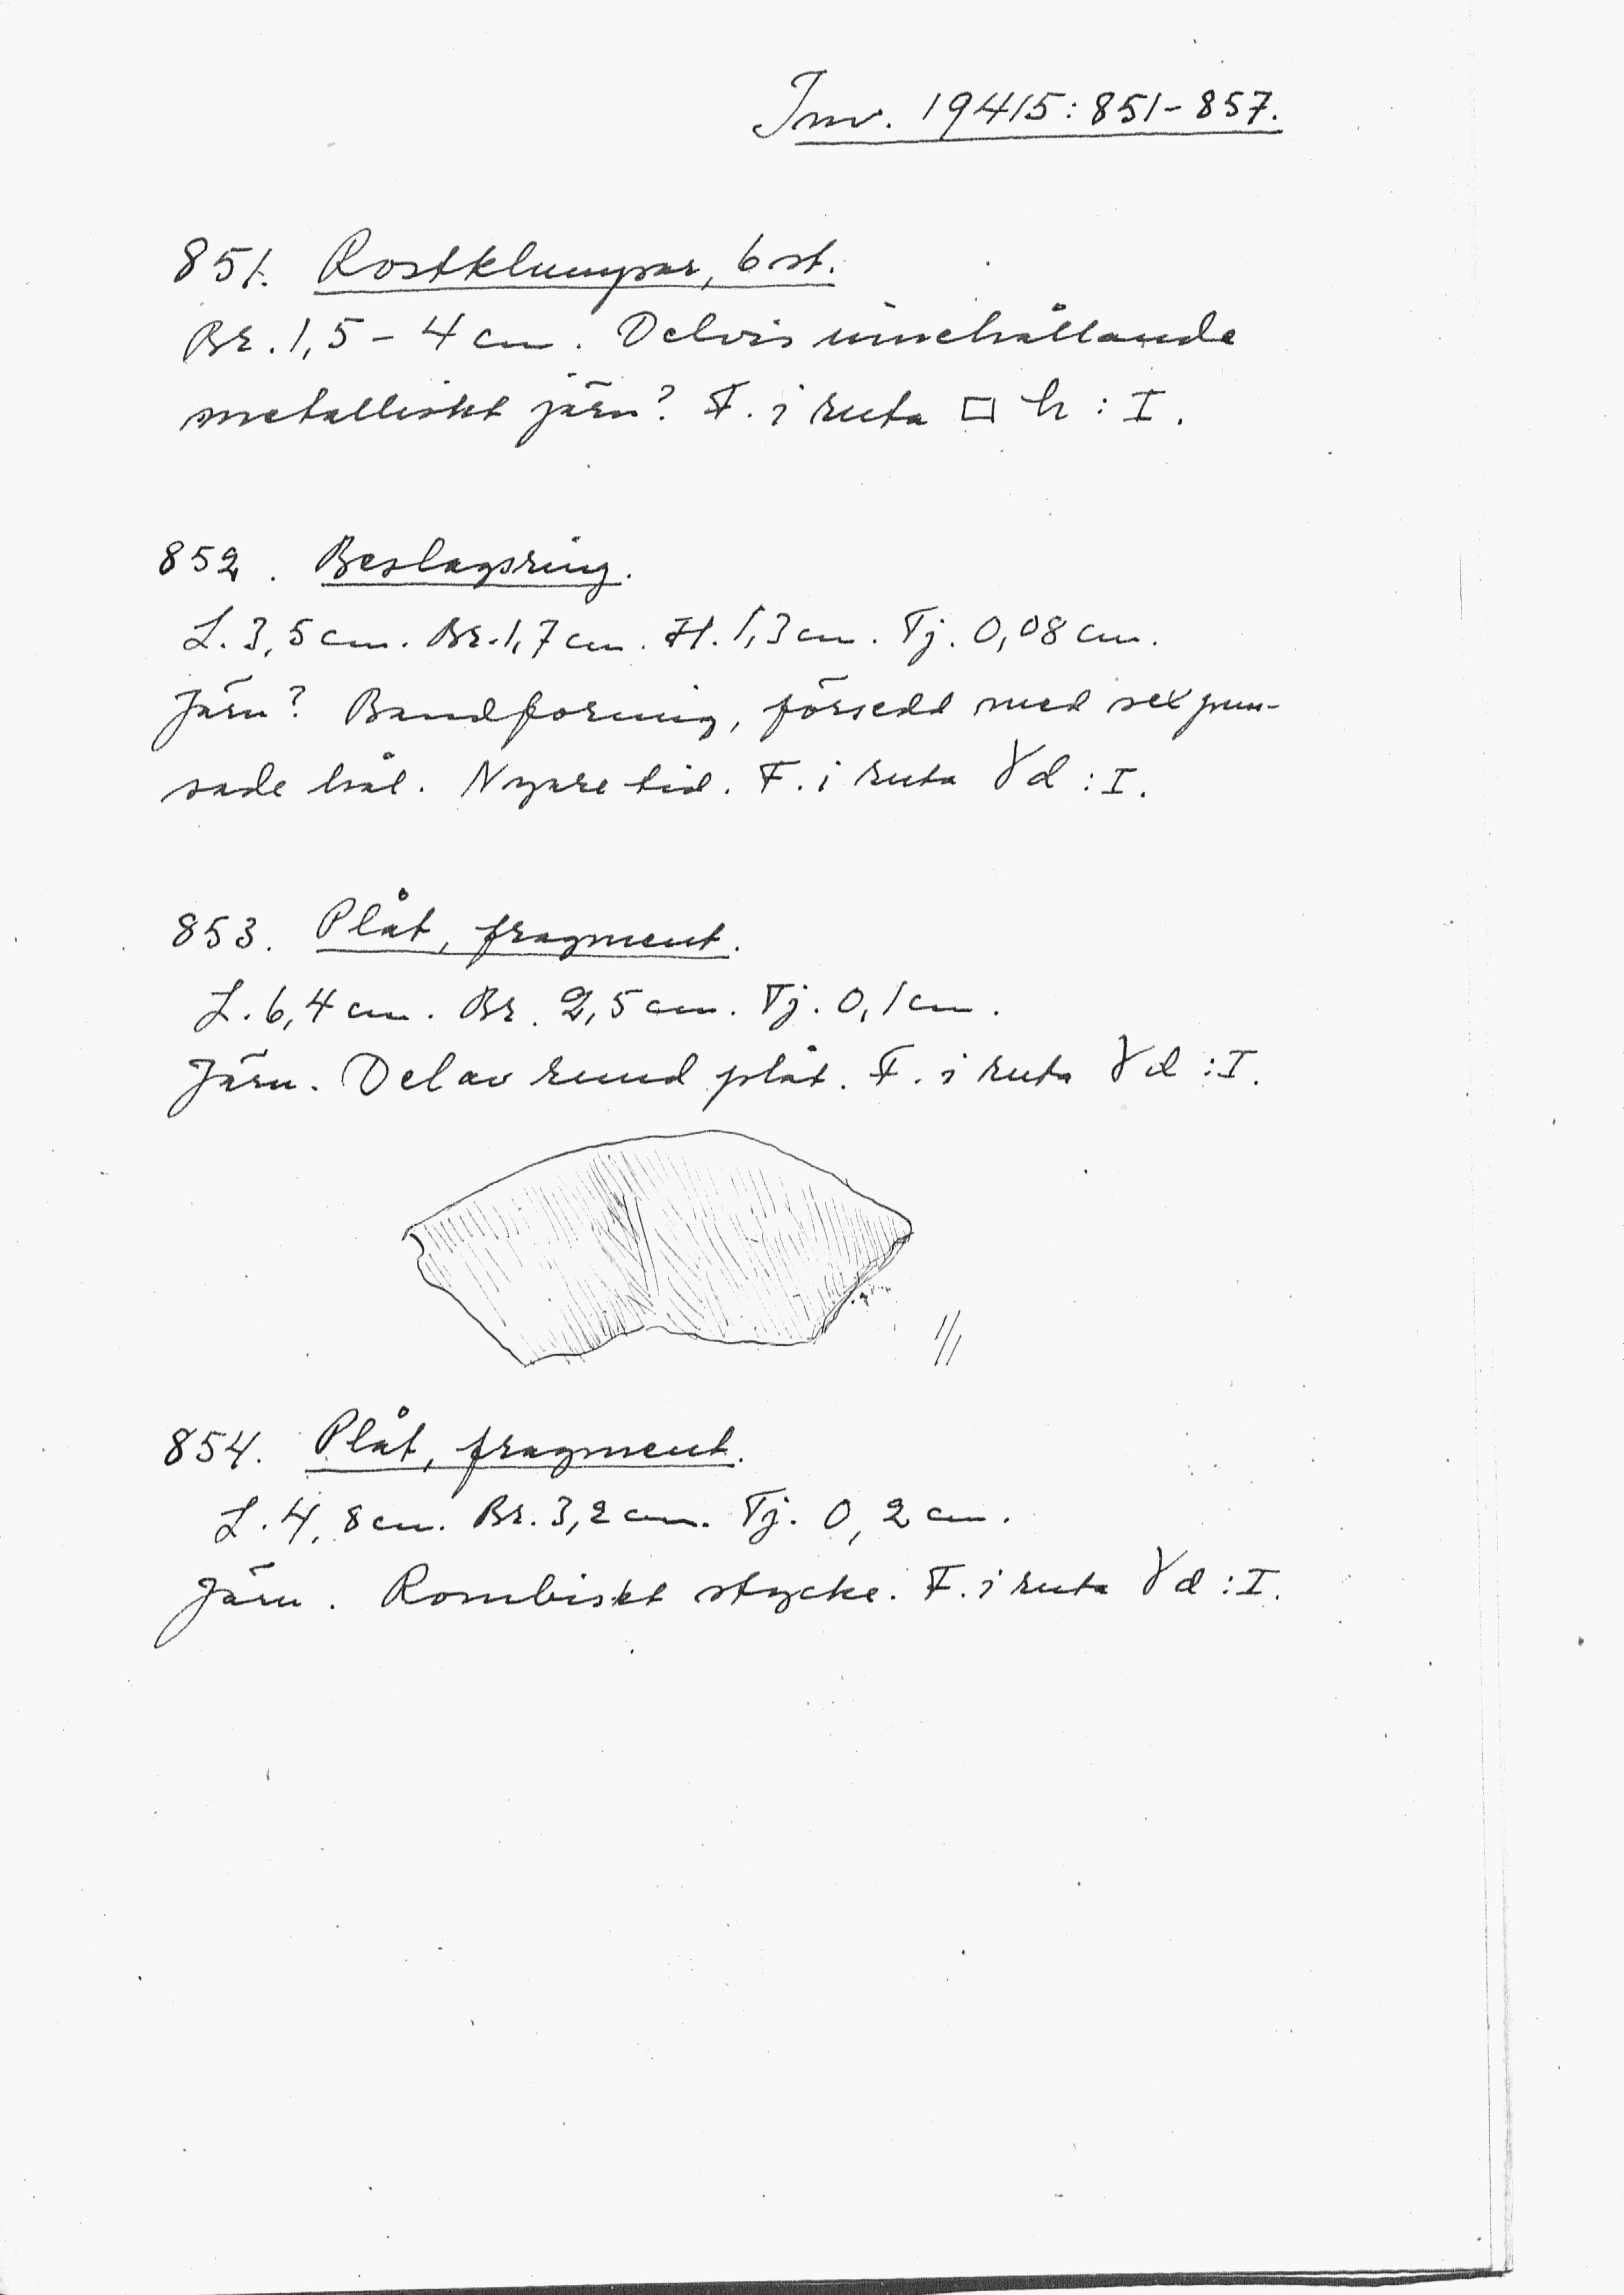 Inv. 19415:851-857.
851. Rostklumpar, 6 st.
Br. 1,5 - 4 cm. Delvis innehållande
metalliskt järn? F. i ruta □ h : I.
852. Beslagsring.
L. 3,5 cm. Br. 1,7 cm. H. 1,3 cm. Tj. 0,08 cm.
Järn? Bandformig, försedd med sex pun-
sade hål. Nyare tid. F. i ruta γ d : I.
853. Plåt, fragment.
L. 6,4 cm. Br. 2,5 cm. Tj. 0,1 cm.
Järn. Del av rund plåt. F. i ruta γ d : I.
1/1
854. Plåt, fragment.
L. 4,8 cm. Br. 3,2 cm. Tj. 0,2 cm.
Järn. Rombiskt stycke. F. i ruta γ d : I.